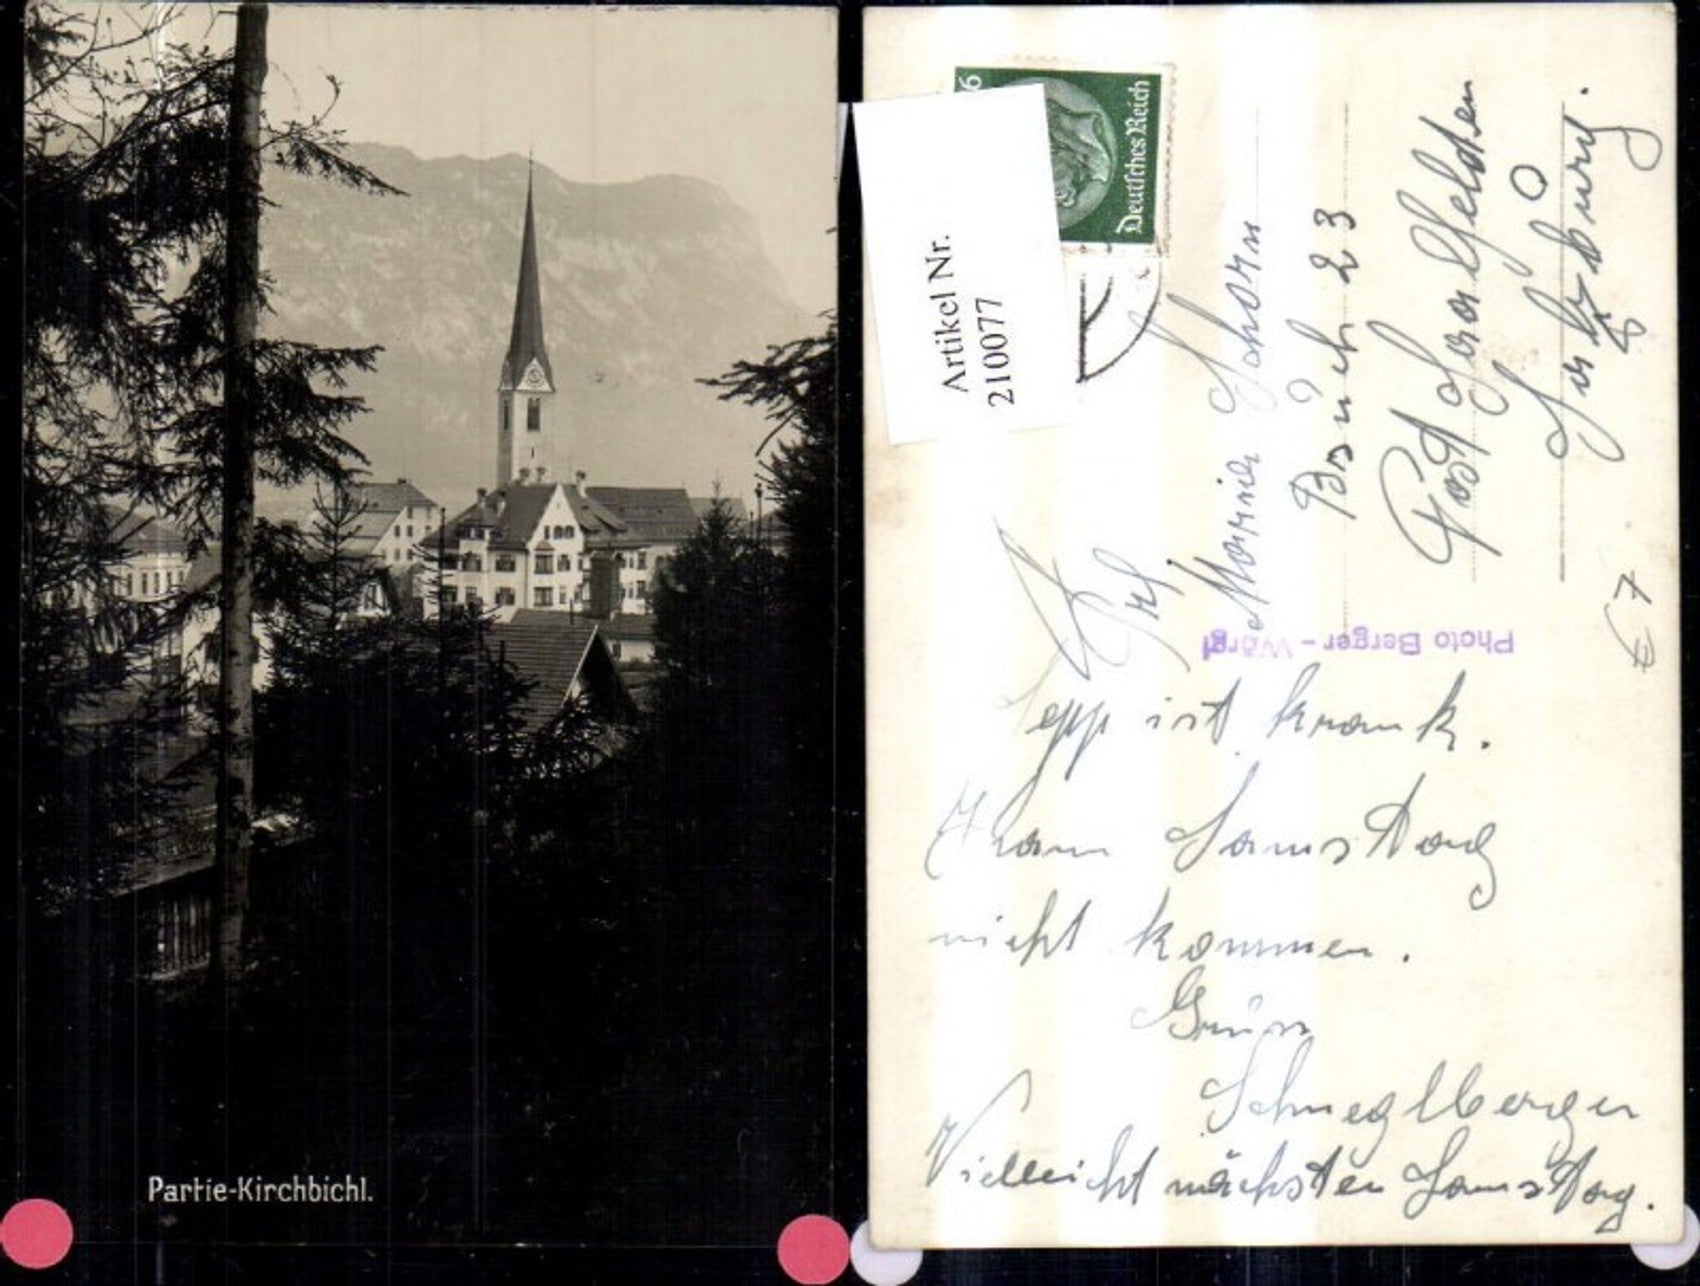 Partie-Kirchbichl.
6
Deutsches Reich
Artikel Nr.
210077
Frl.
Marie Schorn
Bruch 23
Post Saalfelden
Salzburg.
€ 7
Photo Berger - Wörgl
Sepp ist krank.
Kann Samstag
nicht kommen.
Grüss
Schneglberger
Vielleicht nächsten Samstag.